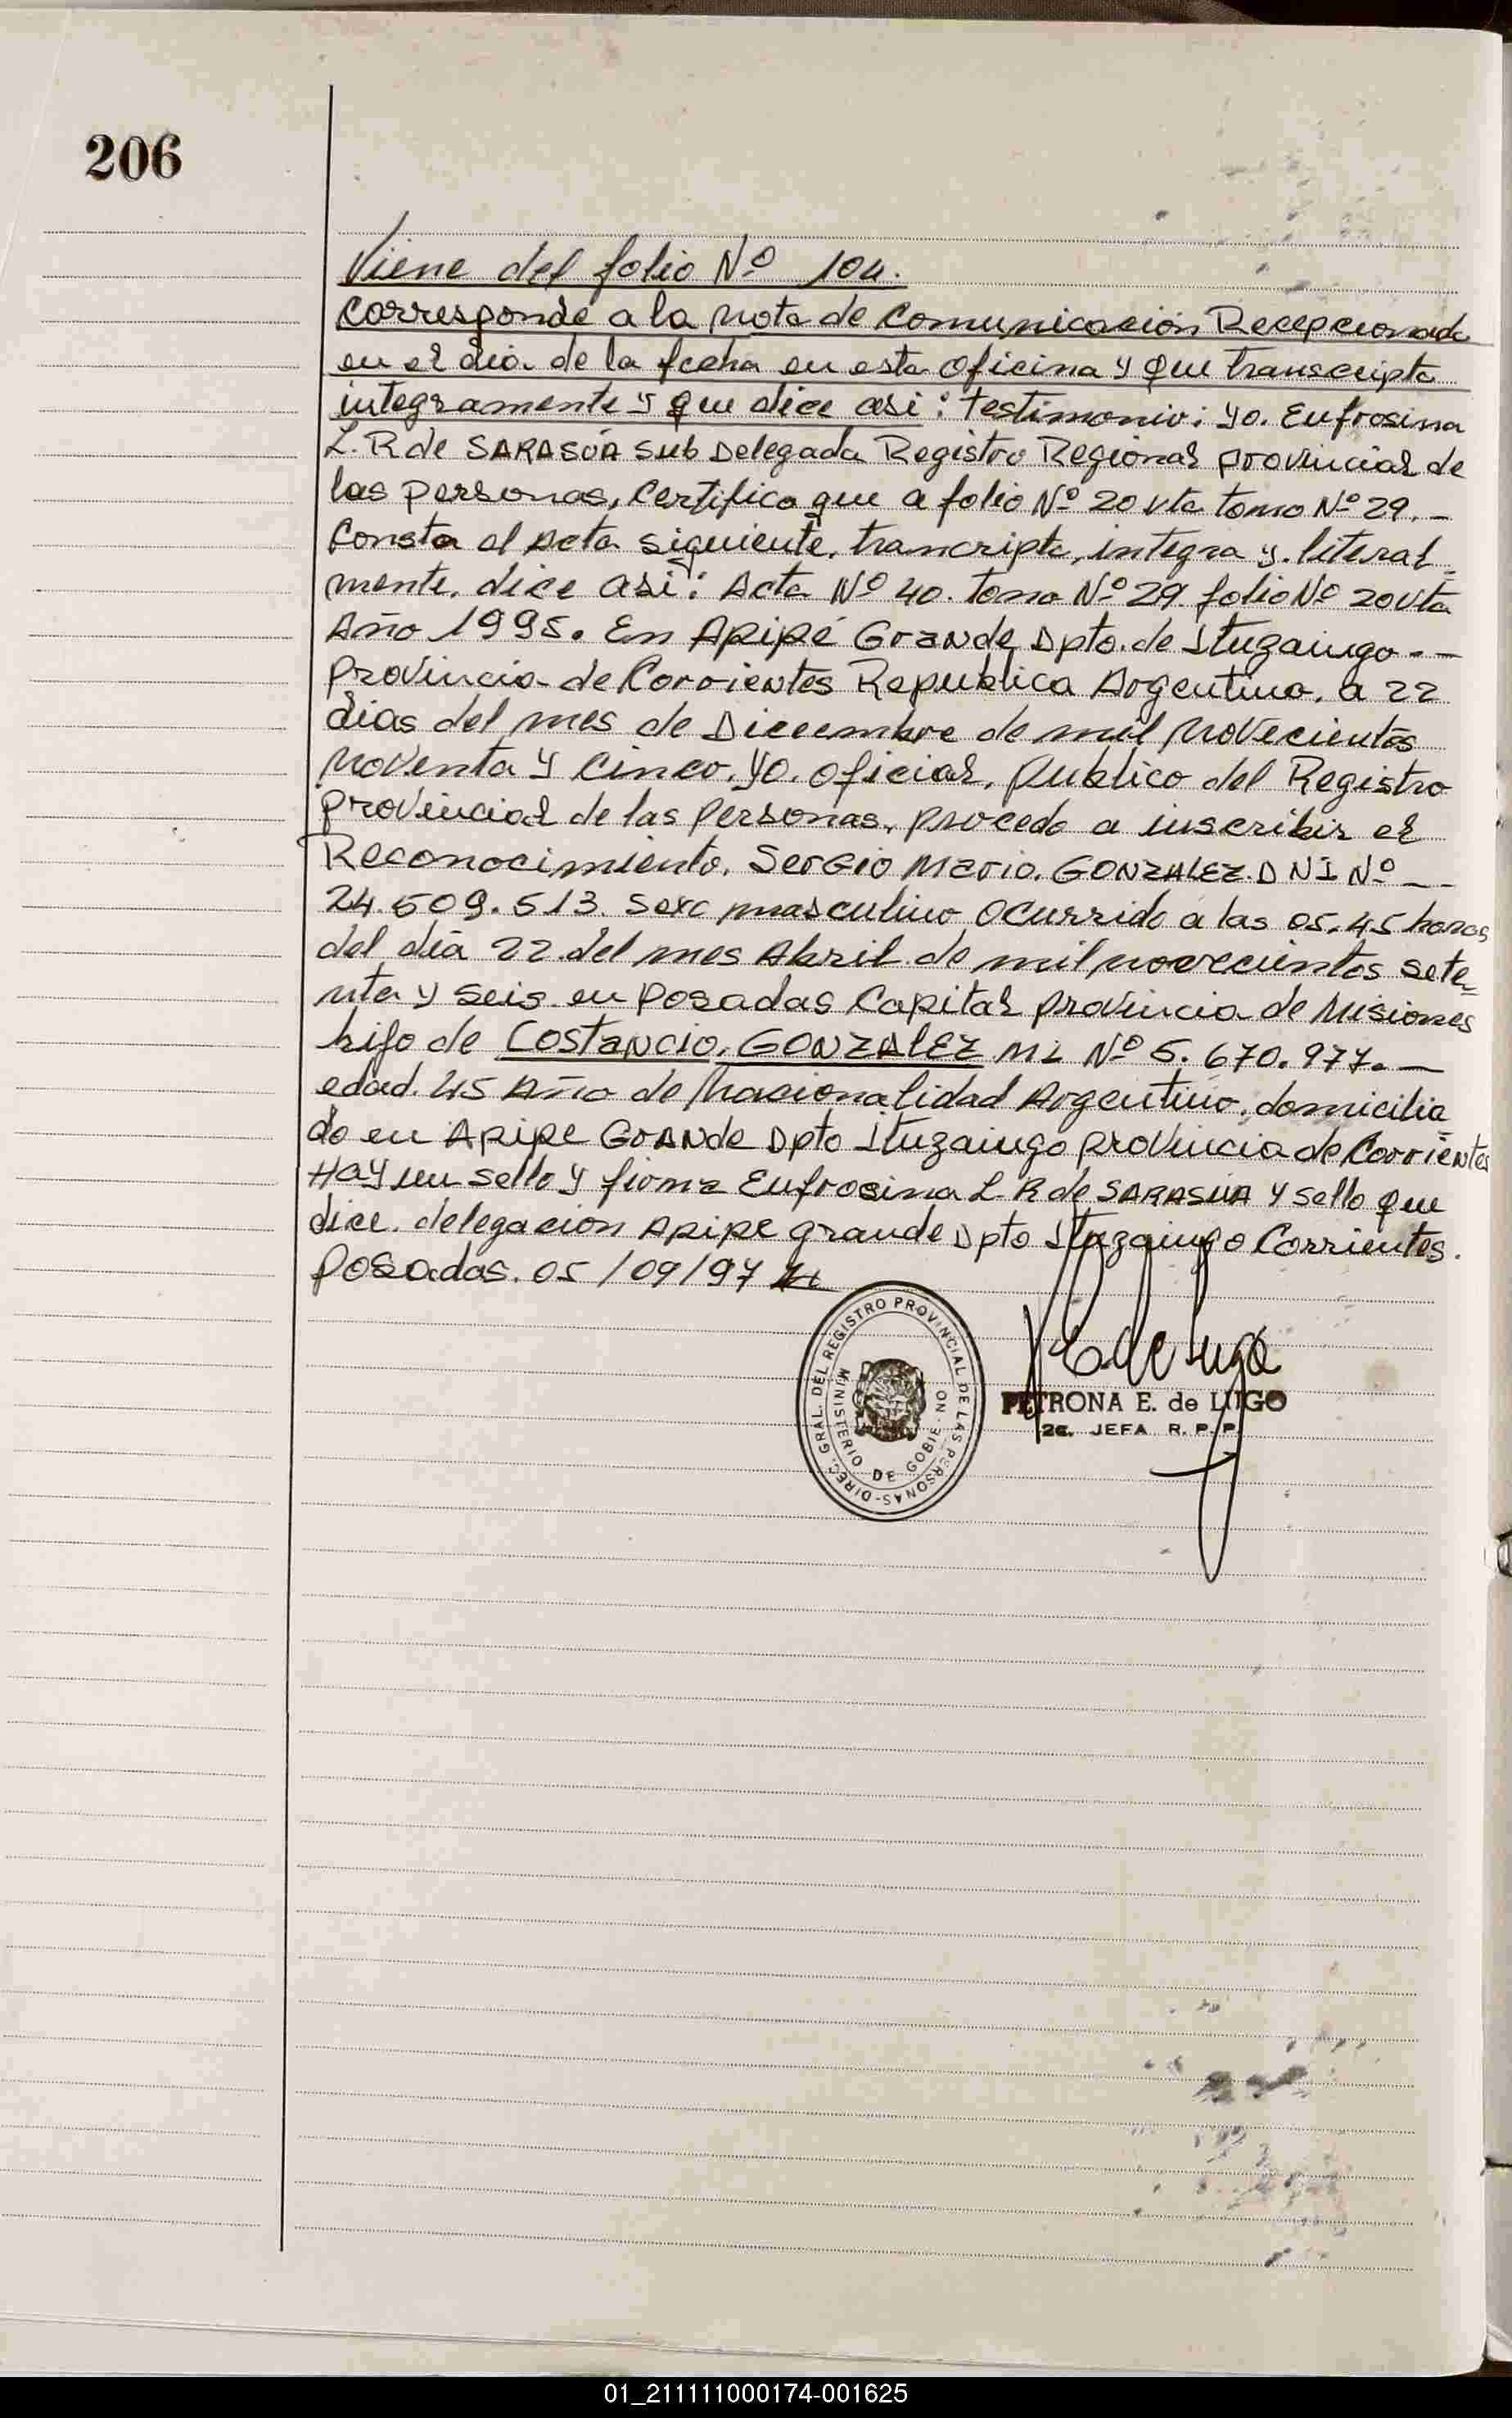 206
Viene del folio Nº 104.
Corresponde a la Nota de Comunicación Recepcionada
en el dia de la fecha en esta Oficina y que transcripta
integramente y que dice asi: testimonio: yo. Eufrosina
L. R de SARASÚA Sub Delegada Registro Regional provincial de
las personas, Certifico que a folio Nº 20 vta tomo Nº 29. -
Consta el Acta siguiente, trancripta, integra y. literal
mente, dice asi: Acta Nº 40. tomo Nº 29. folio Nº 20 vta
Año 1995. En Apipé Grande Dpto. de Ituzaingo - -
Provincia de Corrientes Republica Argentina, a 22
dias del mes de Diciembre de mil Novecientos
Noventa y Cinco, yo. oficial, publico del Registro
provincial de las personas, procedo a inscribir el
Reconocimiento. Sergio Mario. GONZALEZ. DNI Nº - -
24.509.513. sexo masculino Ocurrido a las 05.45 horas
del día 22 del mes Abril de mil novecientos sete-
nta y seis en Posadas Capital provincia de Misiones
hijo de Costancio, GONZALEZ MI Nº 5.670.977. -
edad. 45 Año de Nacionalidad Argentino, domicilia
do en Apipe Grande Dpto Ituzaingo provincia de Corrientes
Hay un sello y firma Eufrosina L R de SARASUA y sello que
dice. delegación Apipe grande Dpto Ituzaingo Corrientes.
Posadas. 05/09/97
DIREC. GRAL. DEL REGISTRO PROVINCIAL DE LAS PERSONAS-
MINISTERIO DE GOBIERNO
E. de Lugo
PETRONA E. de LUGO
2a. JEFA R. P. P.
01_211111000174-001625